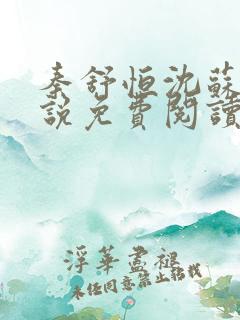 秦舒恒沈蘇
說免費閱讀
浮華盡褪
未经同意禁止轉載